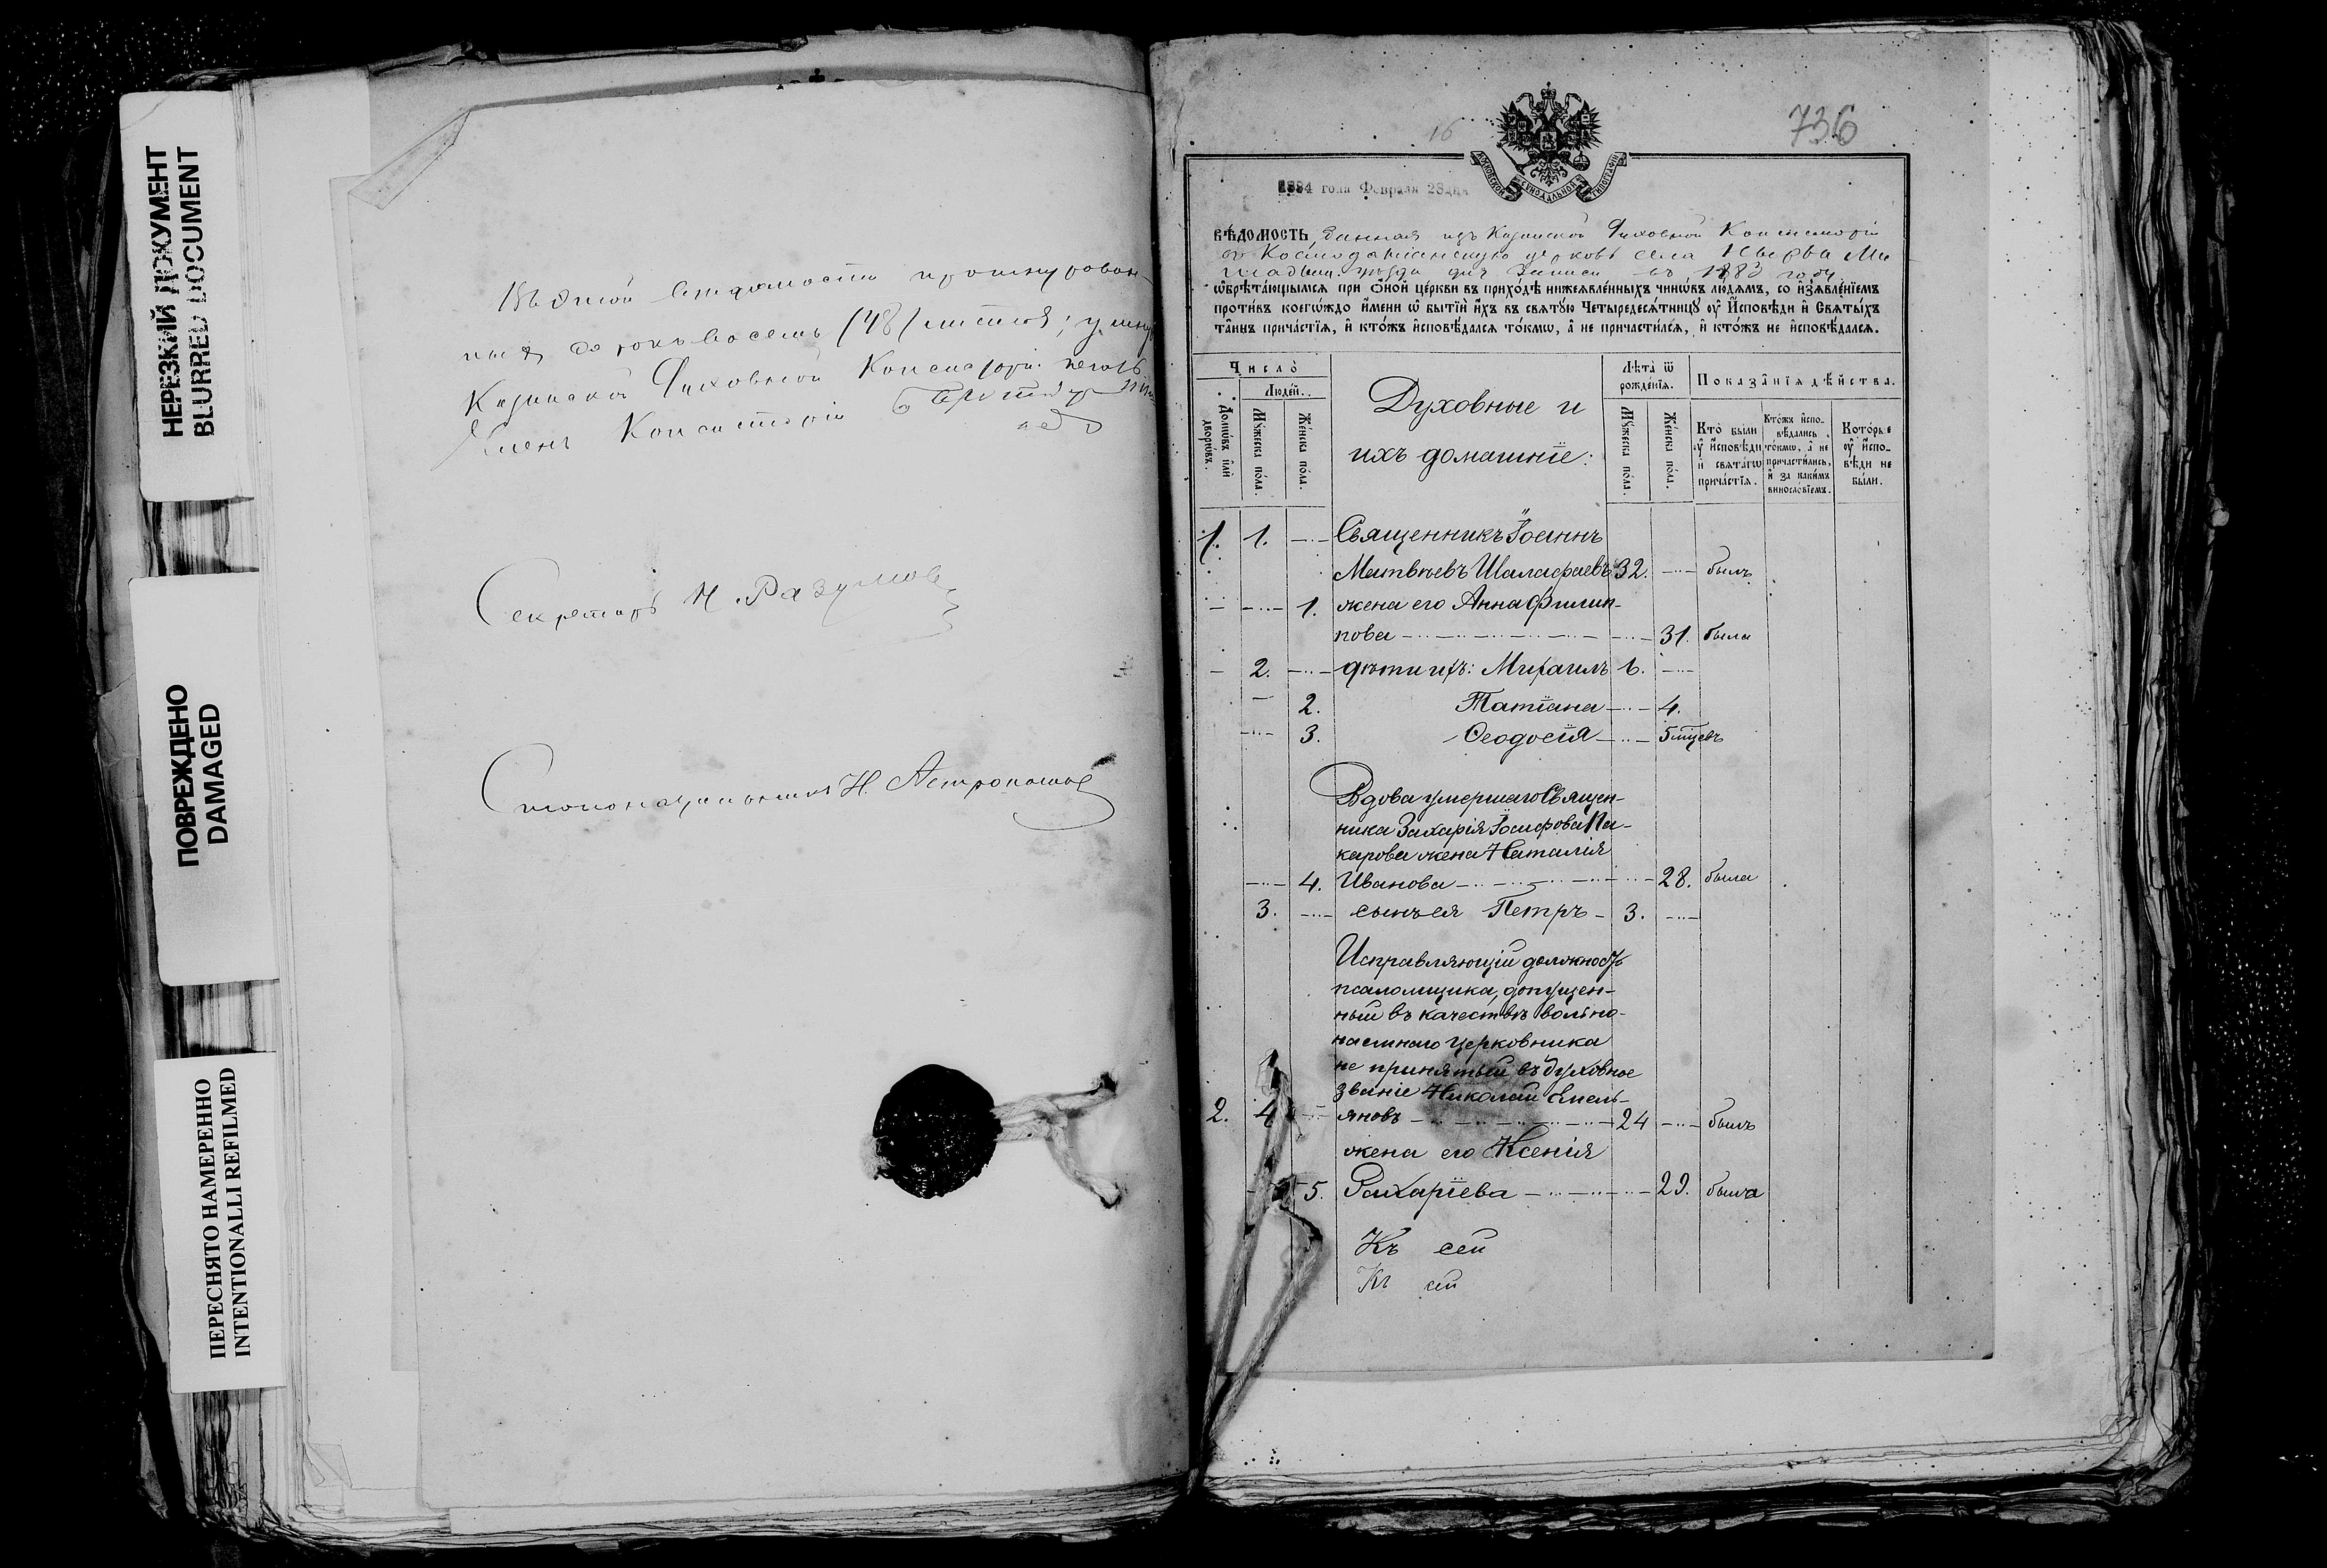 НЕРЕЗКИЙ ДОКУМЕНТ
BLURRED DOCUMENT
ПОВРЕЖДЕНО
DAMAGED
ПЕРЕСНЯТО НАМЕРЕННО
INTENTIONALLI REFILMED
Въ этой ведомости прошнурован-
сорокъ восемь (48) листовъ;
Казанской Духовной Консисторіи печать
Членъ Консисторіи
Секретарь Н. Разумов
Столоначальникъ Н.
16
736
МОСКОВСКОЙ СѴНОДАЛЬНОЙ ТИПОГРАФІИ
1884 года Февраля 28 дня
ВѢДОМОСТЬ, данная изъ Казанской Духовной Консисторіи
въ Космодаміанскую церковь села Кшерва Ма
мадыш. уѣзда для записи въ 1883 году
ѡбрѣта́ющымсѧ при ѻ́ной це́ркви въ прихо́дѣ нижеѧвле́нныхъ чинѡ́въ лю́демъ, со и҆з̾ѧвле́нїемъ
проти́въ коегѡ́ждо и҆́мени ѡ҆ бытїѝ и҆́хъ въ свѧтꙋ́ю Четыредесѧ́тницꙋ оу҆ И҆сповѣ́ди и҆ Свѧты́хъ
та́инъ прича́стїѧ, и҆ кто́жъ и҆сповѣ́далсѧ то́кмѡ, а҆ не причасти́лсѧ, и҆ кто́жъ не и҆сповѣ́далсѧ.
Число̀
Люде́й.
Домѡ́въ и҆лѝ дворѡ́въ.
Мꙋ́жеска по́ла.
Же́нска по́ла.
Духовные и
ихъ домашніе:
Лѣ́та ѿ рожде́нїѧ.
Мꙋ́жеска по́ла.
Же́нска по́ла.
Показа̑нїѧ дѣ́йства.
Кто̀ бы́ли оу҆ И҆сповѣ́ди и҆ свѧта́гѡ прича́стїѧ.
Кто́жъ и҆сповѣ́дались то́кмѡ, а҆ не причасти́лись, и҆ за каки́мъ винослѡ́вїемъ.
Кото́рые оу҆ и҆сповѣ́ди не бы́ли.
1. 1. Священникъ Іоаннъ
Матвѣевъ Шалафаевъ 32. былъ
1. жена его Анна Филип-
пова 31. была
2. дѣти ихъ: Михаилъ 6.
2. Татіана 4.
3. Ѳеодосія 5 мцевъ
Вдова умершаго Священ-
ника Захарія Іосифова Ма-
карова жена Наталія
4. Иванова 28. была
3. сынъ ея Петръ 3.
Исправляющій должность
псаломщика, допущен-
ный въ качествѣ вольно-
наемнаго церковника
не принятый въ духовное
званіе Николай Емель-
2. 4 яновъ 24 былъ
жена его Ксенія
5. Захаріева 29. была
Къ сей
Къ сей